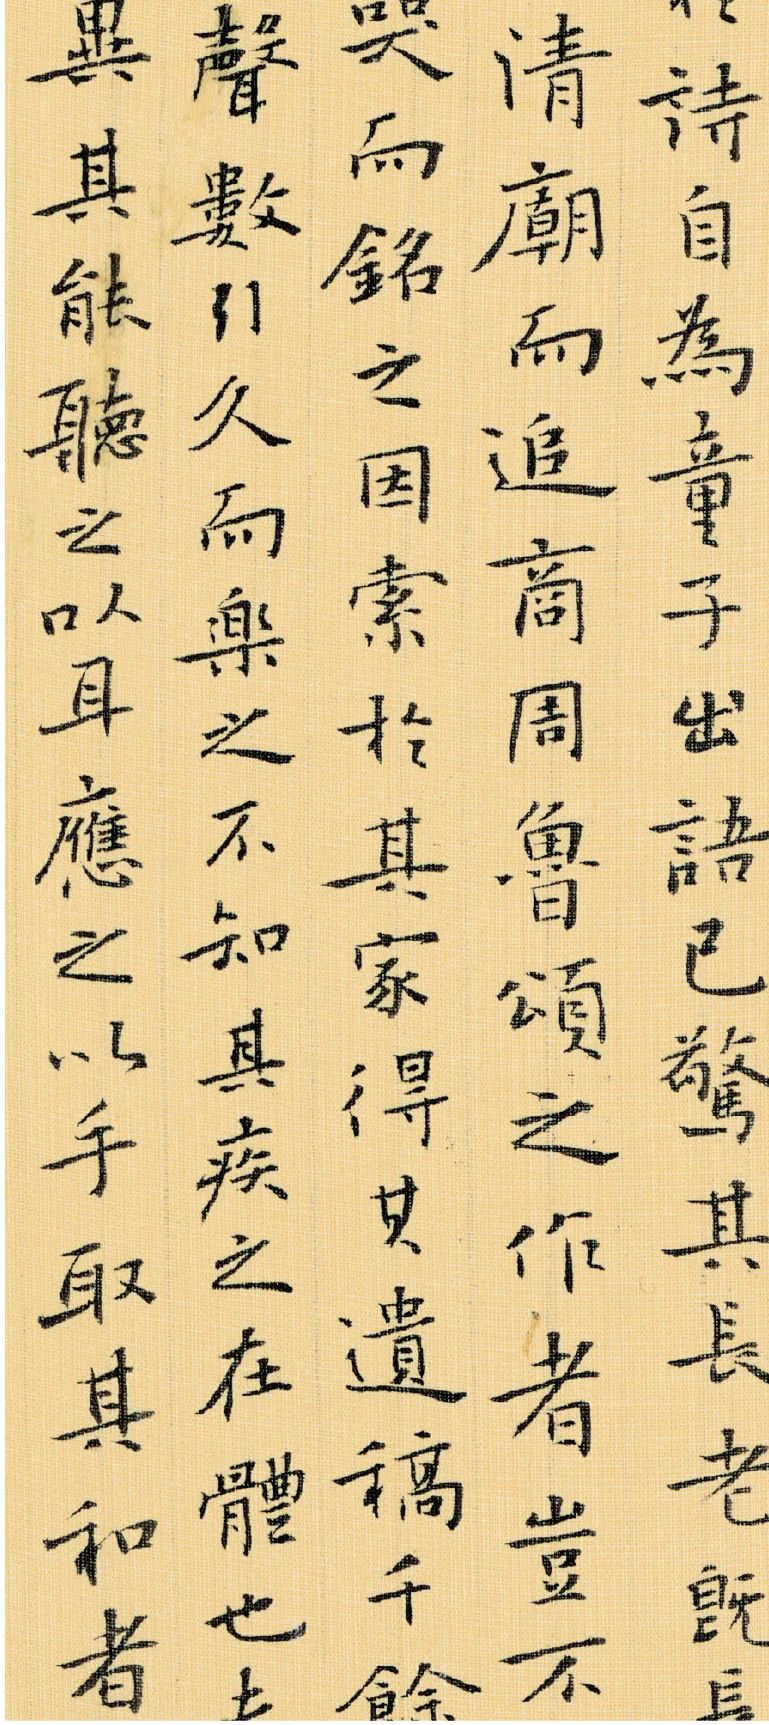 於詩自為童子出語已驚其長老既長
清廟而追商周魯頌之作者豈不
哭而銘之因索於其家得其遺稿千餘
聲數引久而樂之不知其疾之在體也夫
異其能聽之以耳應之以手取其和者